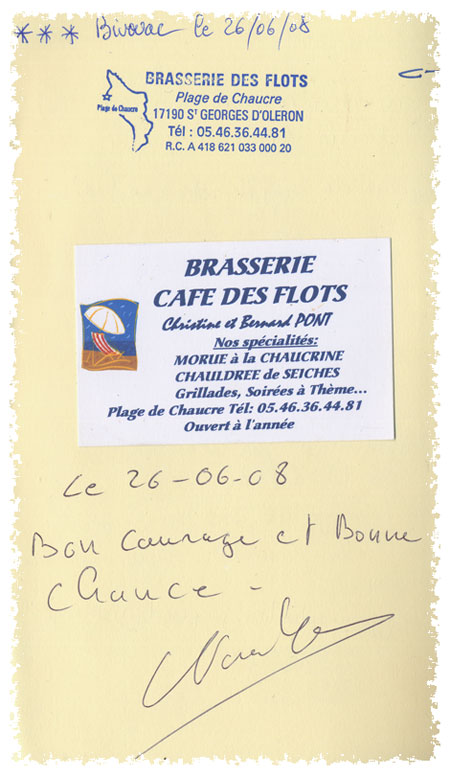 *** Bivouac le 26/06/08
BRASSERIE DES FLOTS
Plage de Chaucre
Plage de Chaucre
17190 St GEORGES D'OLERON
Tél : 05.46.36.44.81
R.C. A 418 621 033 000 20
BRASSERIE
CAFE DES FLOTS
Christine et Bernard PONT
Nos spécialités:
MORUE à la CHAUCRINE
CHAULDREE de SEICHES
Grillades, Soirées à Thème...
Plage de Chaucre Tél: 05.46.36.44.81
Ouvert à l'année
Le 26-06-08
Bon courage et Bonne
chance -